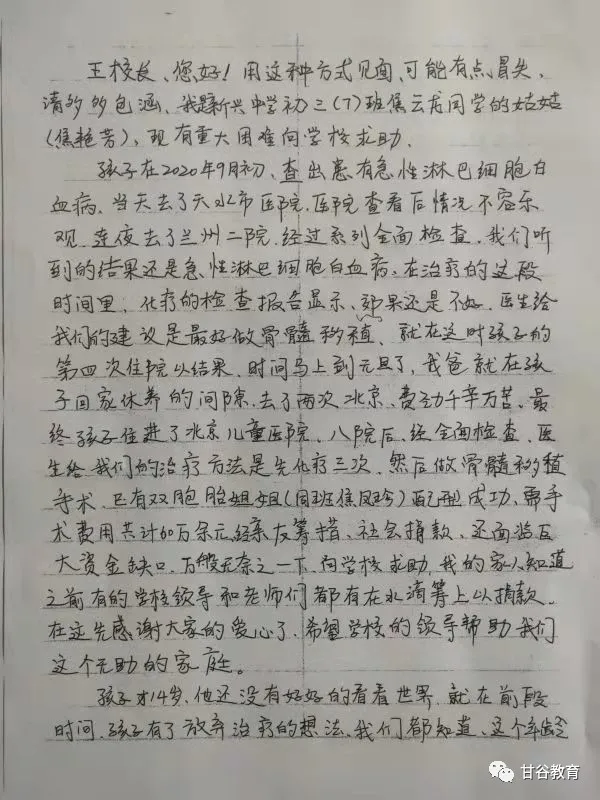 王校长、您好！用这种方式见面、可能有点冒失、
请多多包涵、我是新兴中学初三(7)班焦云龙同学的姑姑
(焦艳芳)、现有重大困难向学校求助.
孩子在2020年9月初、查出患有急性淋巴细胞白
血病、当天去了天水市医院.医院查看后情况不容乐
观、连夜去了兰州二院.经过系列全面检查、我们听
到的结果还是急性淋巴细胞白血病、在治疗的这段
时间里；化疗的检查报告显示、效果还是不好.医生给
我们的建议是最好做骨髓移植、就在这时孩子的
第四次住院以结果、时间马上到元旦了，我爸就在孩
子回家休养的间隙、去了两次北京、费劲千辛万苦、最
终孩子住进了北京儿童医院、八院后、经全面检查、医
生给我们的治疗方法是先化疗三次、然后做骨髓移植
手术、已有双胞胎姐姐(同班焦凤珍)配型成功、需手
术费用共计60万余元,经亲友筹措、社会捐款、还面临巨
大资金缺口.万般无奈之一下、向学校求助,我的家人知道
之前有的学校领导和老师们都有在水滴筹上以捐款.
在这先感谢大家的爱心了、希望学校的领导帮助我们
这个无助的家庭。
孩子才14岁、他还没有好好的看看世界、就在前段
时间、孩子有了放弃治疗的想法、我们都知道、这个年龄
甘谷教育